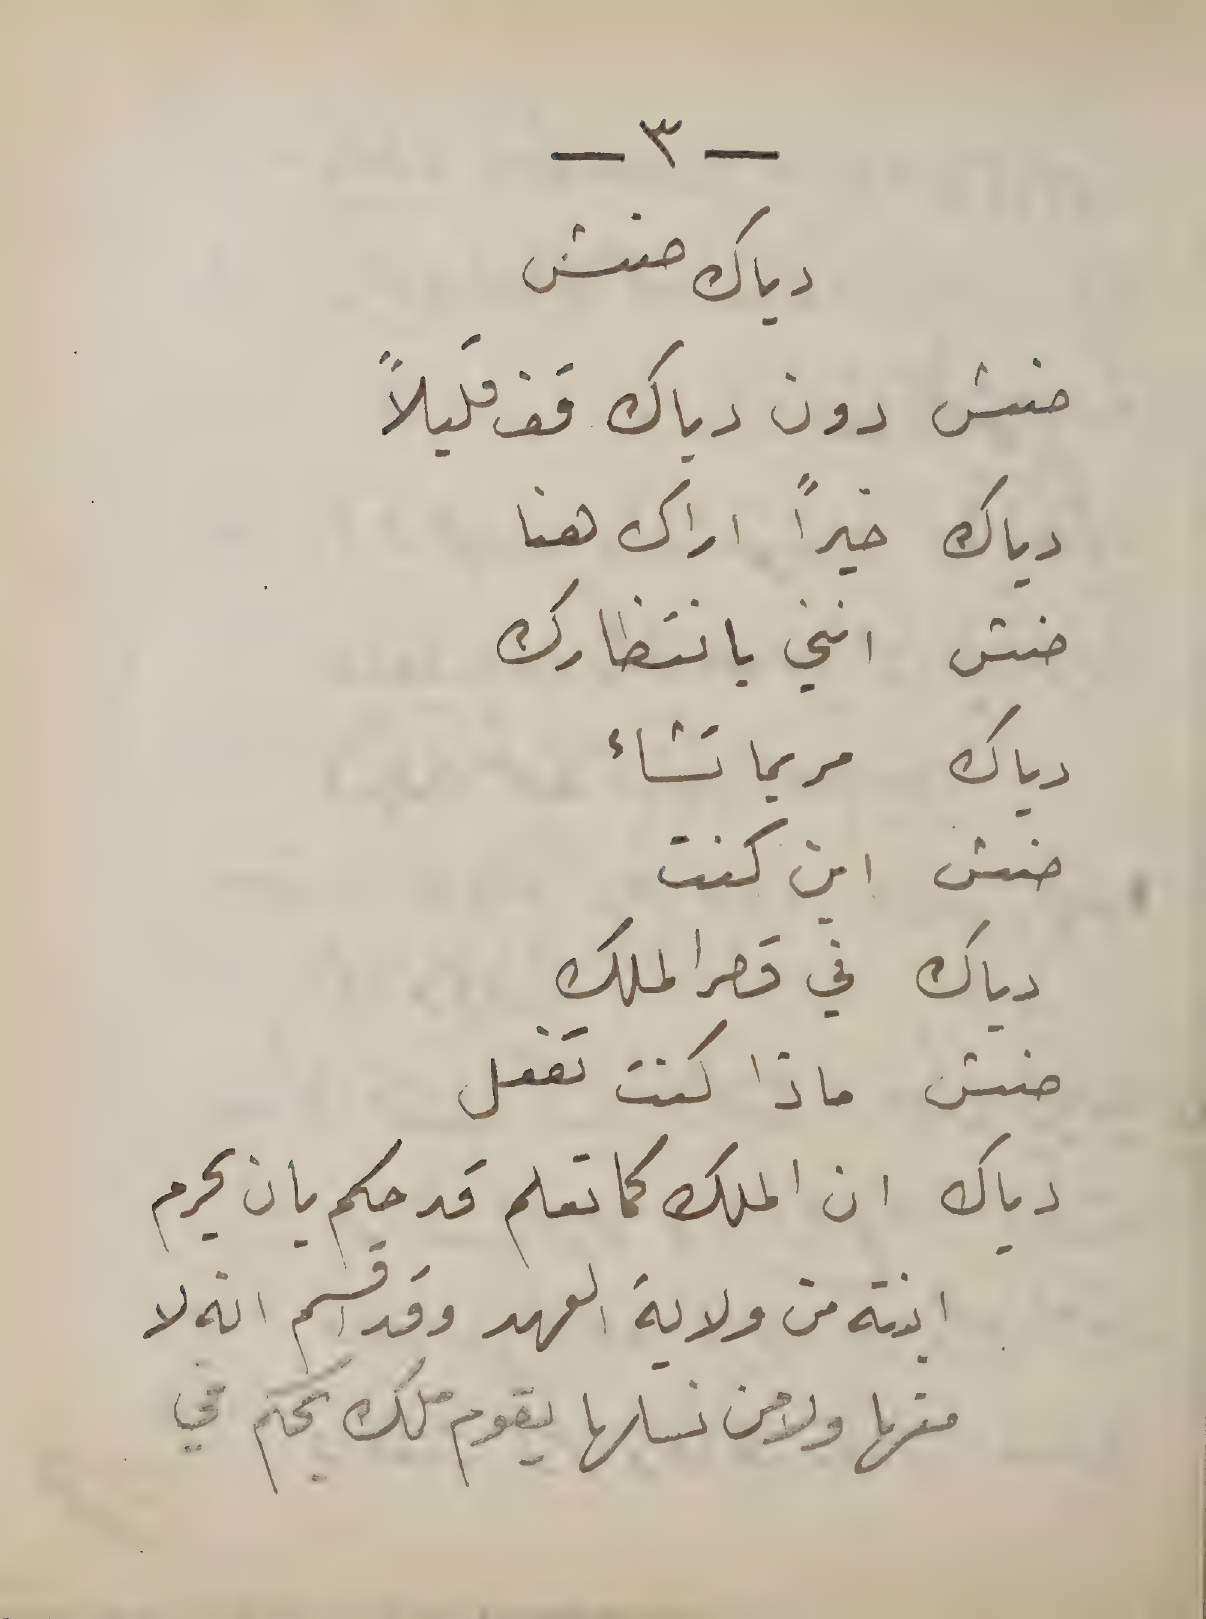 — ٣ —
دياك ضنش
ضنش دون دياك قف قليلاً
دياك خيراً اراك هنا
ضنش انني بانتظارك
دياك مر بما تشاء
ضنش اين كنت
دياك في قصر الملك
ضنش ماذا كنت تفعل
دياك ان الملك كما تعلم قد حكم بان يحرم
ابنته من ولاية العهد وقد اقسم انه لا
منها ولا من نسلها يقوم ملك يحكم في